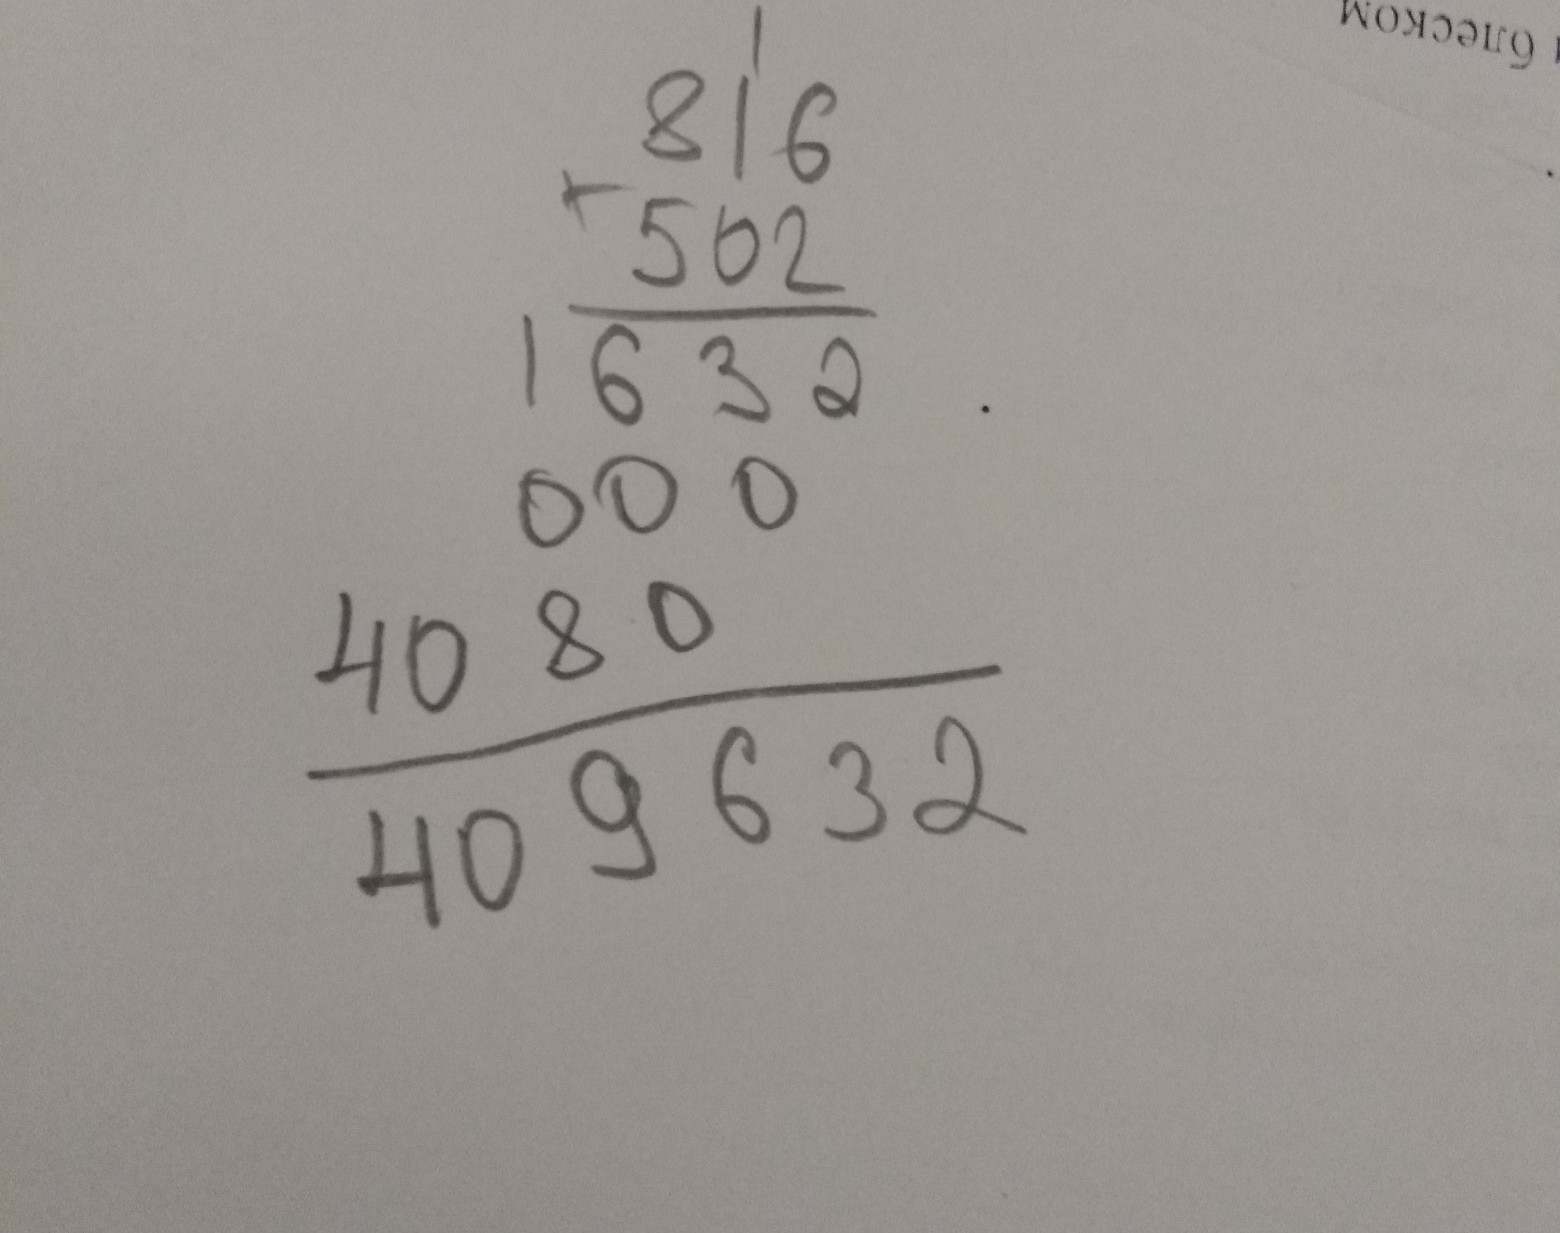 блеском
1
816
+
502
1632
000
4080
409632